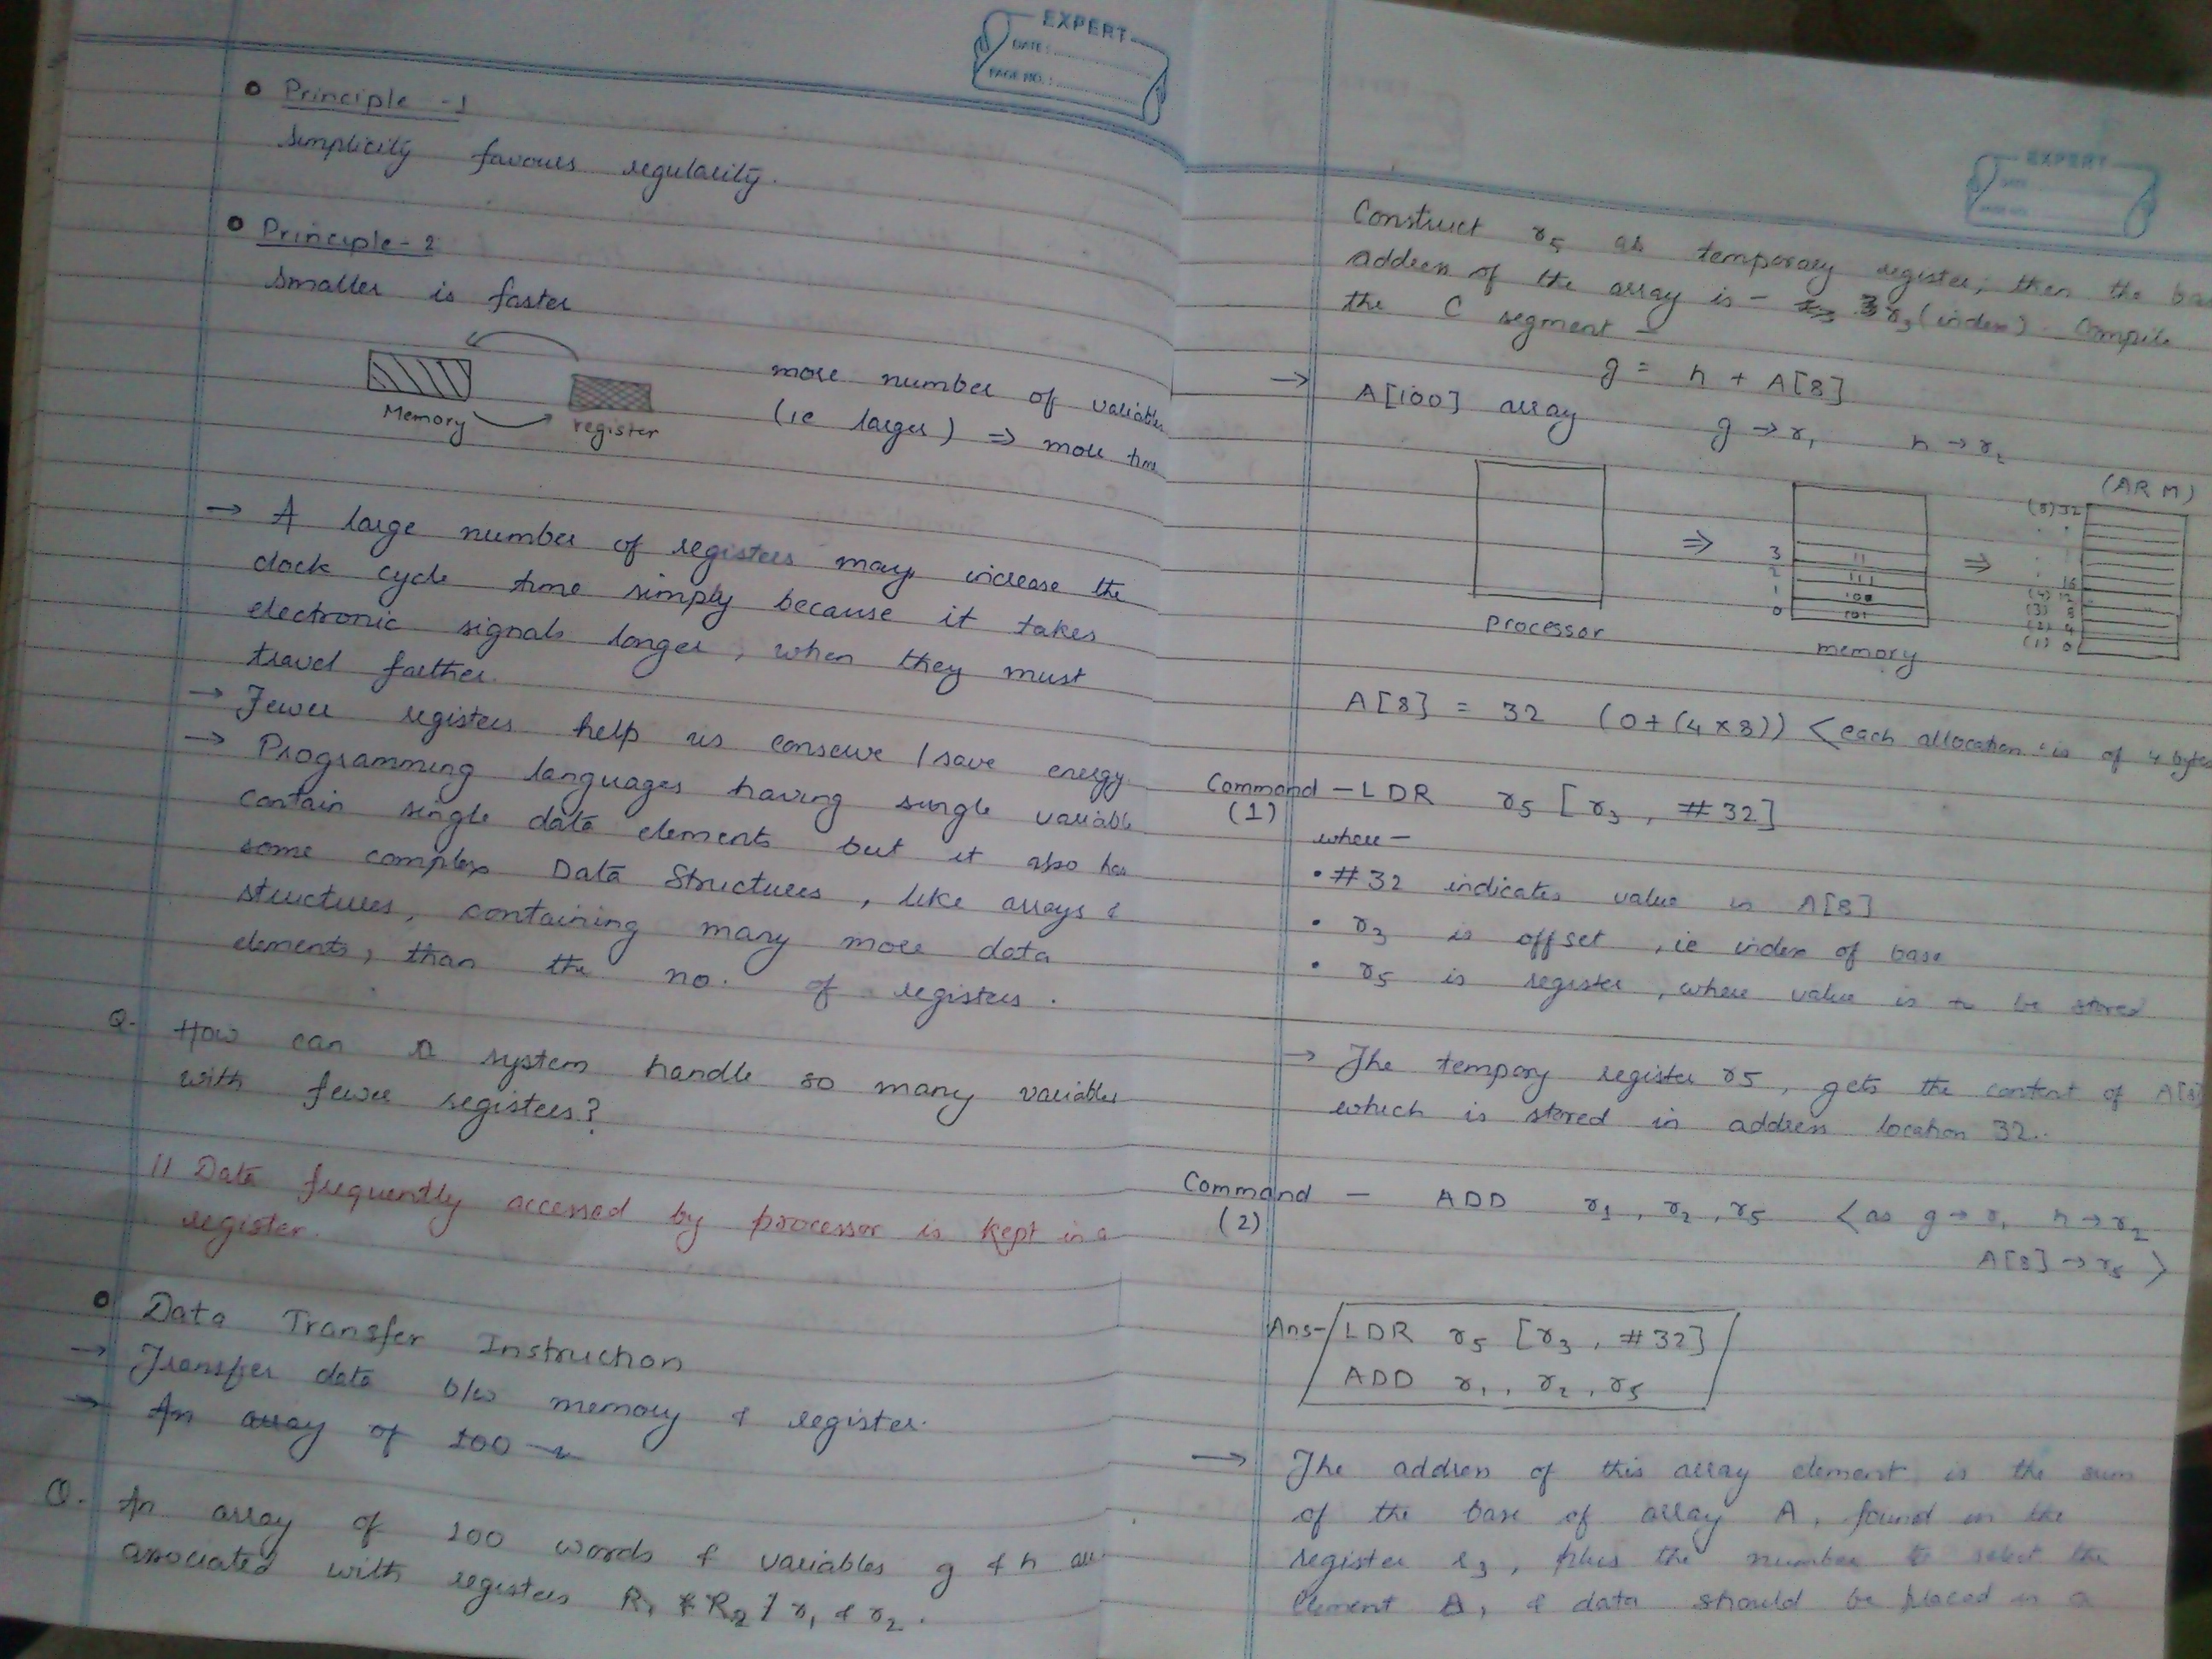 EXPERT
DATE:
PAGE NO.:
Principle -1
Simplicity favours regularity.
Principle-2
smaller is faster
Memory
register
more number of variables
(ie larger) ⇒ more time
→ A large number of registers may increase the
clock cycle time simply because it takes
electronic signals longer, when they must
travel farther.
→ Fewer registers help us conserve / save energy.
→ Programming languages having single variable
contain single data elements but it also has
some complex Data Structures, like arrays &
structures, containing many more data
elements, than the no. of registers.
Q. How can a system handle so many variables
with fewer registers?
Data frequently accessed by processor is kept in a
register.
Data Transfer Instruction
→ Transfer data b/w memory & register.
→ An array of 100
Q. An array of 100 words & variables g & h are
associated with registers R1 & R2 / r1 & r2.
EXPERT
Construct r5 as temporary register, then the
address of the array is - r3 (index). Compile
the C segment -
g = h + A[8]
→ A[100] array g → r1 h → r2
(ARM)
(8) 32
3
2
1
0
11
111
100
101
16
(4) 12
(3) 8
(2) 4
(1) 0
processor
memory
A[8] = 32 (0+(4×8)) <each allocation is of 4 bytes
Command - LDR r5 [r3, #32]
(1)
where -
• #32 indicates value in A[8]
• r3 is offset, ie index of base
• r5 is register, where value is to be stored
→ The tempory register r5, gets the content of A[8]
which is stored in address location 32.
Command - ADD r1, r2, r5 <as g→r1 h→r2
(2)
A[8]→r5>
Ans- LDR r5 [r3, #32]
ADD r1, r2, r5
→ The address of this array element is the sum
of the base of array A, found in the
register r3, plus the number to select the
element , & data should be placed in a